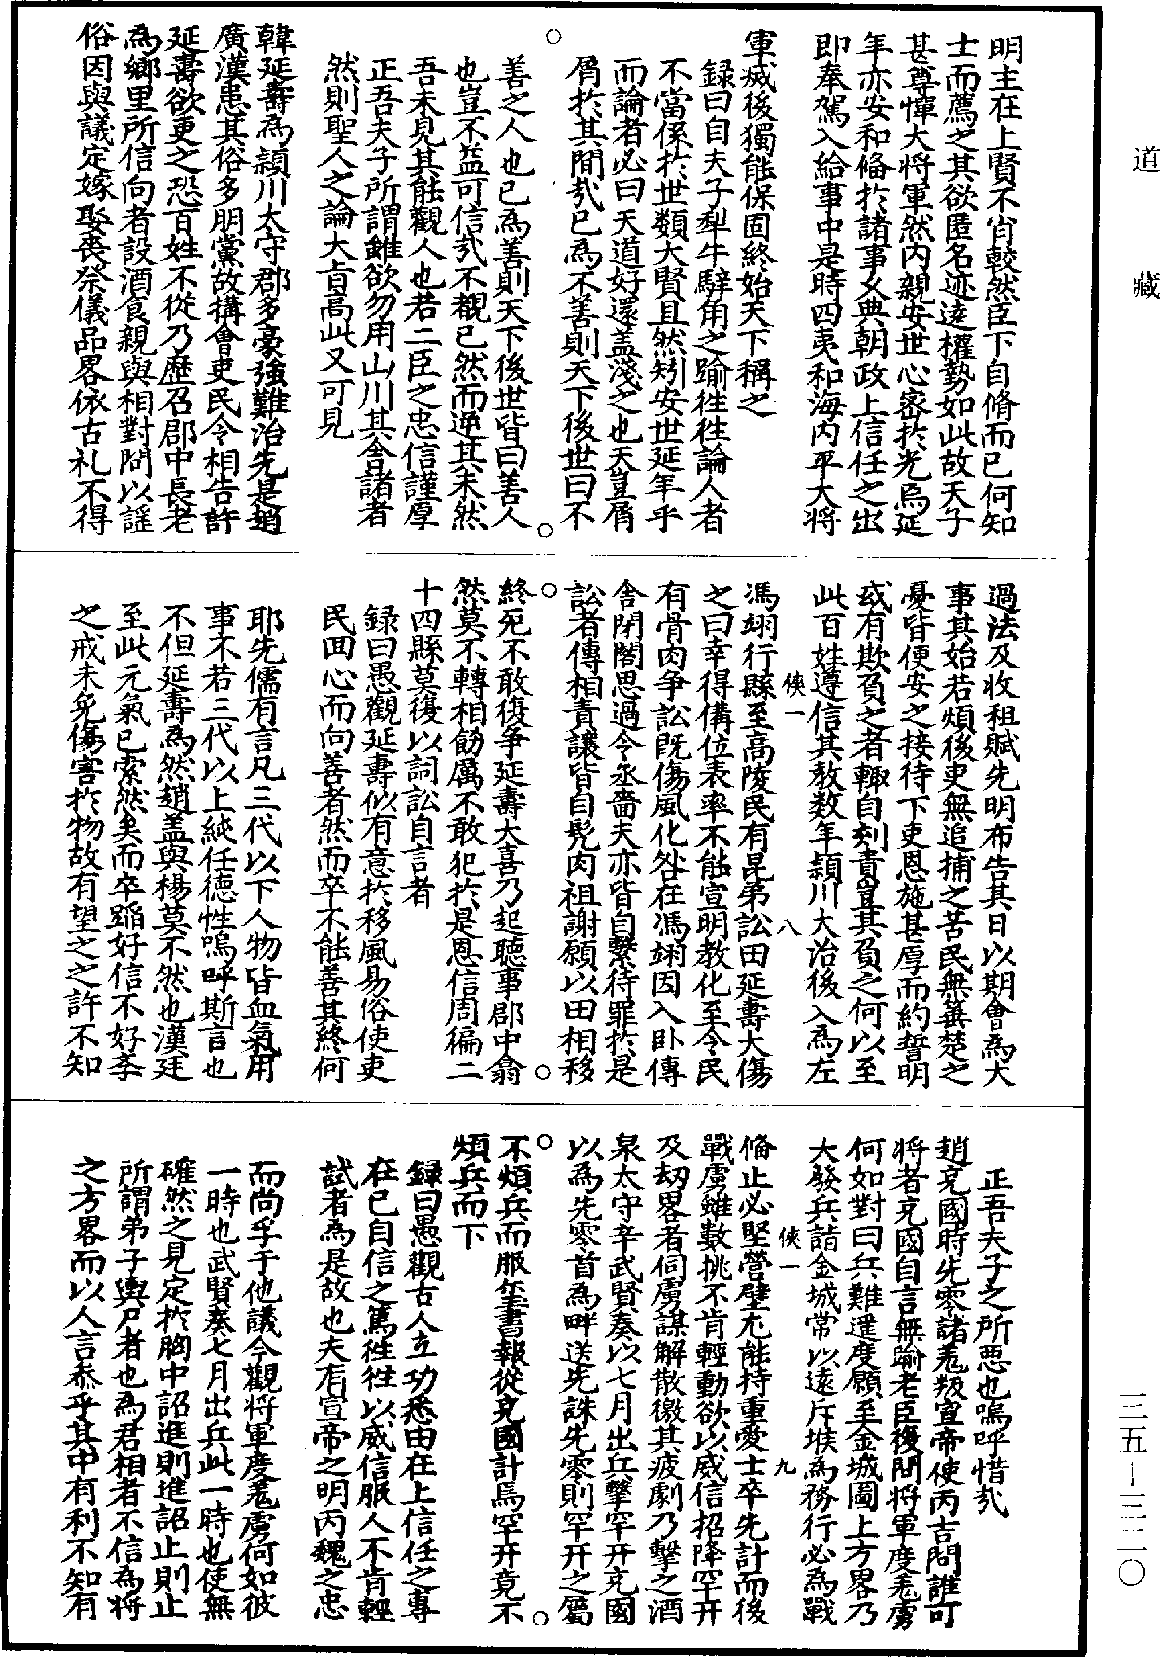 道藏
明主在上賢不肖較然臣下自脩而已何知
士而薦之其欲匿名迹逺權勢如此故天子
甚尊憚大將軍然内親安世心密於光焉延
年亦安和俻於諸事文典朝政上信任之出
即奉駕入給事中是時四夷和海内平大將
軍㓕後獨能保固終始天下稱之
録曰自夫子犁牛騂角之踰徃徃論人者
不當係於世類大賢且然矧安世延年乎
而論者必曰天道好還盖淺之也天豈屑
屑於其間㢤已為不善則天下後世曰不
善之人也已為善則天下後世皆曰善人
也豈不益可信㢤不覩已然而逆其未然
吾未見其能觀人也若二臣之忠信謹厚
正吾夫子所謂雖欲勿用山川其舎諸者
然則聖人之論大㫖髙此又可見
韓延壽為頴川太守郡多豪強難治先是趙
廣漢患其俗多朋黨故搆會吏民令相告訐
延壽欲更之恐百姓不從乃歷召郡中長老
為鄉里所信向者設酒食親與相對問以謡
俗因與議定嫁娶喪祭儀品畧依古礼不得
過法及收租賦先明布告其日以期會為大
事其始若煩後吏無追捕之苦民無箠楚之
憂皆便安之接待下吏恩施甚厚而約誓明
或有欺負之者輙自刻責豈其負之何以至
此百姓遵信其教数年頴川大治後入為左
俠一
八
馮翊行縣至髙陵民有昆弟訟田延壽大傷
之曰幸得俻位表率不能宣明教化至令民
有骨肉争訟既傷風化咎在馮翊因入卧傳
舎閉閤思過令丞嗇夫亦皆自繫待罪於是
訟者傳相責讓皆自髡肉袒謝願以田相移
終死不敢復争延壽大喜乃起聽事郡中翕
然莫不轉相飭厲不敢犯於是恩信周徧二
十四縣莫復以詞訟自言者
録曰愚觀延壽似有意於移風易俗使吏
民囬心而向善者然而卒不能善其終何
耶先儒有言凡三代以下人物皆血氣用
事不若三代以上純任德性嗚呼斯言也
不但延壽為然趙盖與楊莫不然也漢廷
至此元氣已索然矣而卒蹈好信不好李
之戒未免傷害於物故有望之之許不知
正吾夫子之所惡也嗚呼惜㢤
趙充國時先零諸羗叛宣帝使丙吉問誰可
將者充國自言無踰老臣復問將軍度羗虜
何如對曰兵難遥度願至金城圖上方畧乃
大發兵詣金城常以逺斥堠為務行必為戰
俠一
九
俻止必堅營壁尤能持重愛士卒先計而後
戰虜雖數挑不肯輕動欲以威信招降䍐开
及刼畧者伺虜謀解散徼其疲劇乃擊之酒
泉太守辛武賢奏以七月出兵擊䍐开充國
以為先零首為畔送先誅先零則䍐开之屬
不煩兵而服璽書報從充國計焉䍐开竟不
煩兵而下
録曰愚觀古人立功悉由在上信任之專
在已自信之篤徃徃以威信服人不肯輕
試者為是故也夫有宣帝之明丙魏之忠
而尚孚于他議今觀將軍度羗虜何如彼
一時也武賢奏七月出兵此一時也使無
確然之見定於胸中詔進則進詔止則止
所謂弟子輿尸者也為君相者不信為將
之方畧而以人言叅乎其中有利不知有
三五－三二〇